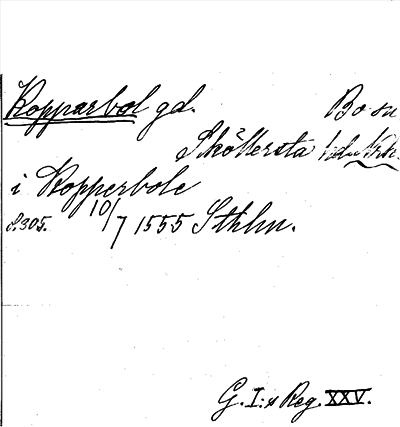 Kopparbol gd. Bo sn
Sköllersta hd. Nrk.
i Kopperbole
S. 305. 10/7 1555 Sthlm.
G. I:s Reg. XXV.